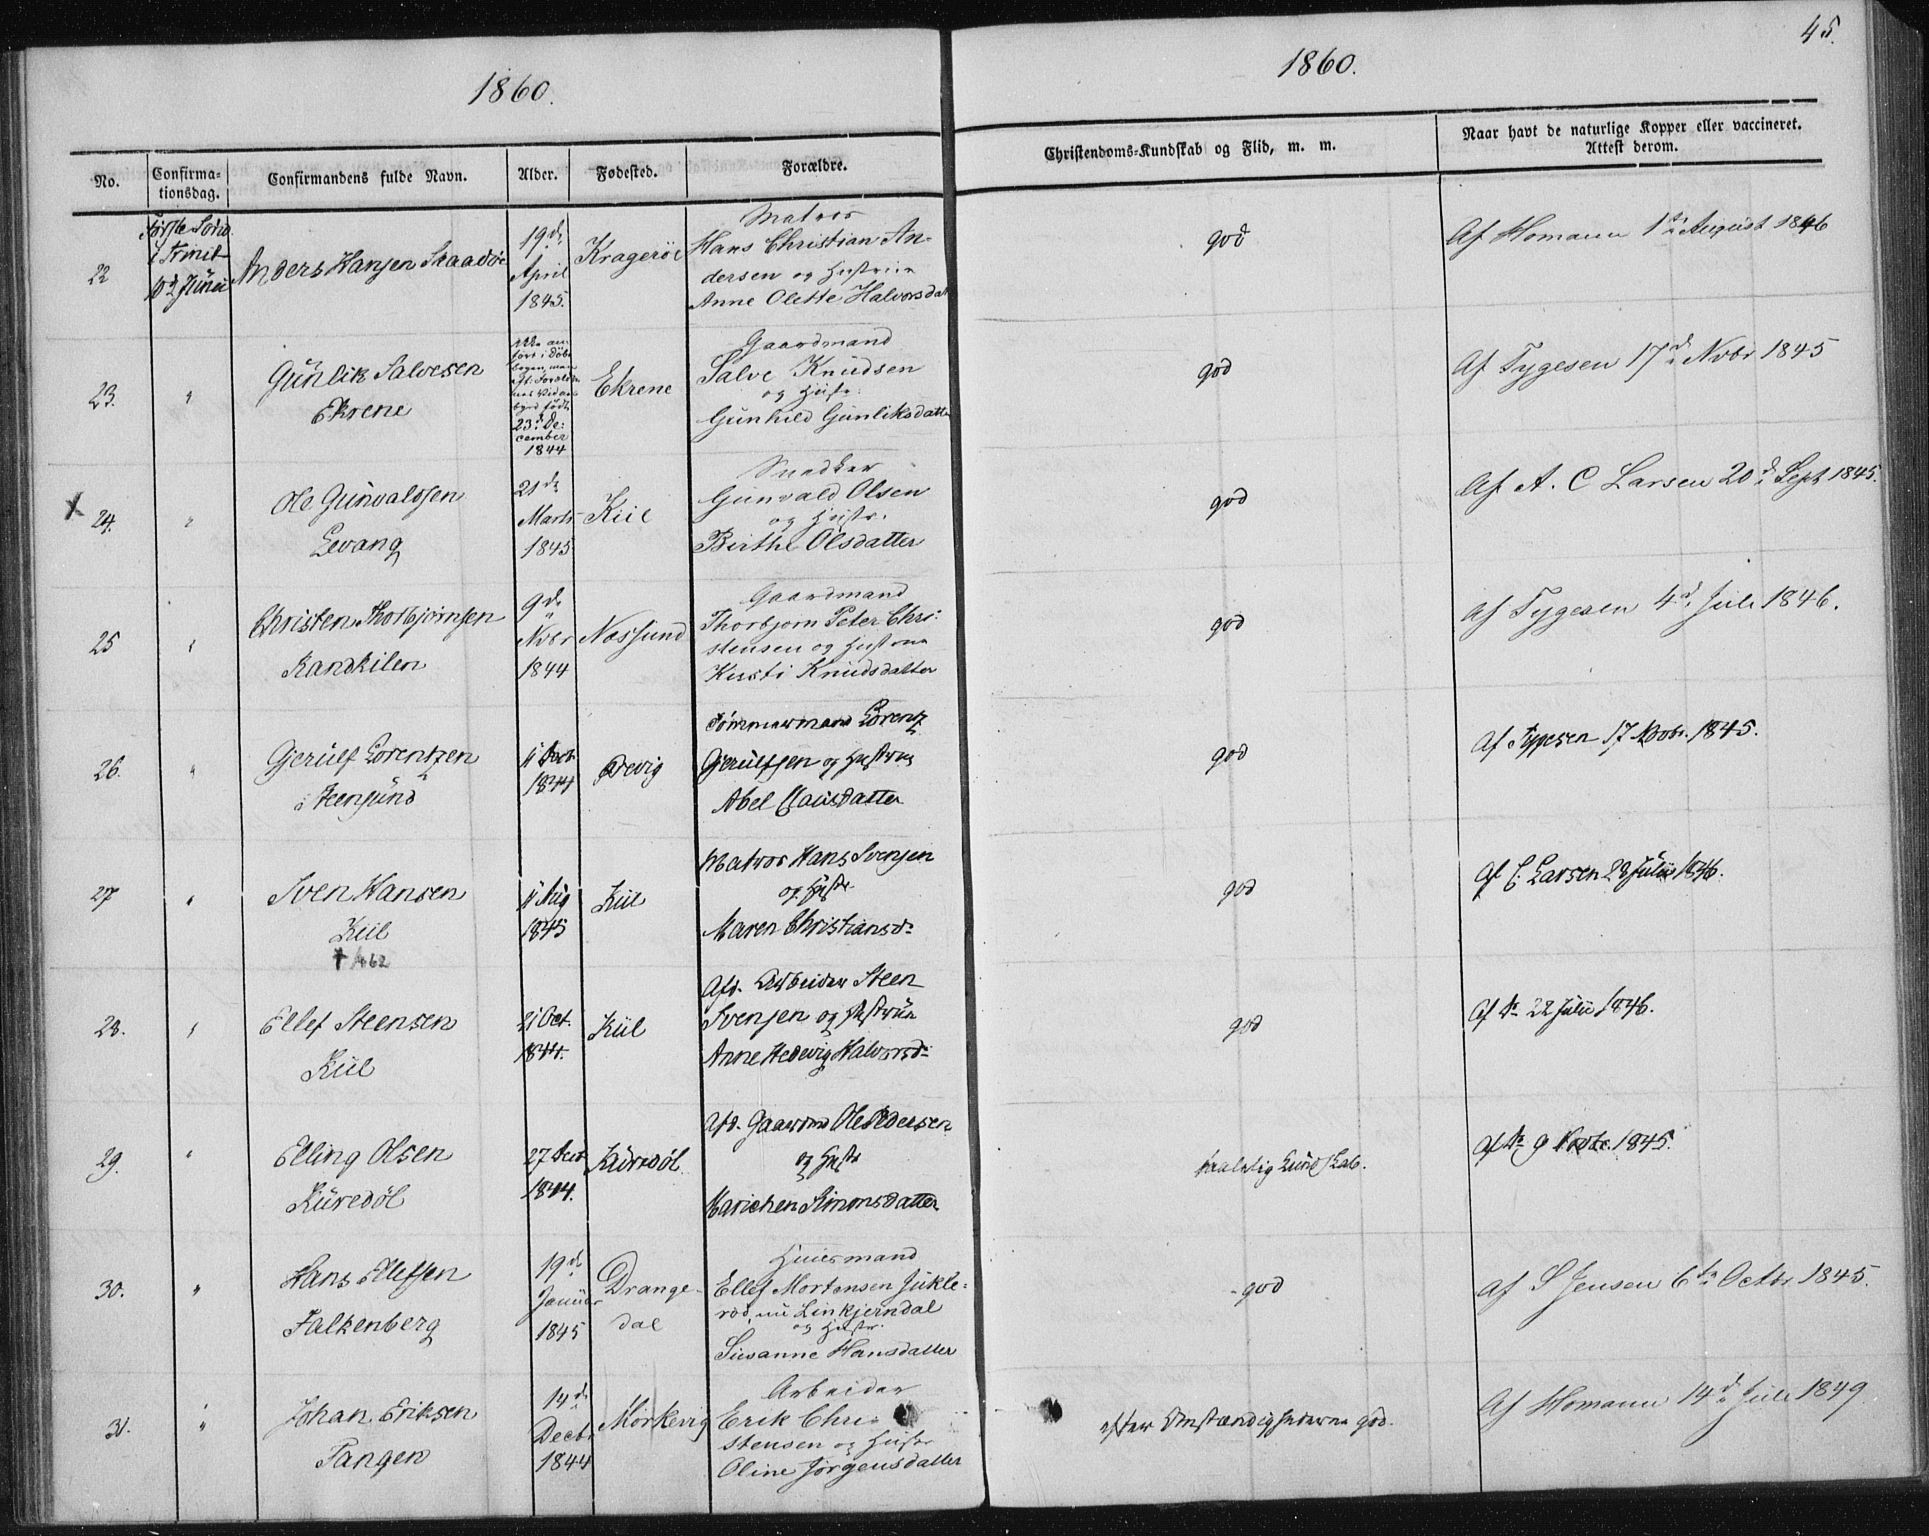 45.
1860.
1860.
No.
Confirma-
tionsdag.
Confirmandens fulde Navn.
Alder.
Fødested.
Forældre.
Christendoms-Kundskab og Flid, m. m.
Naar havt de naturlige Kopper eller vaccineret.
Attest derom.
22
Første Sønd.
i Trinit
10d Junii
Anders Hansen Skaadøe
19de
April
1845.
Kragerøe
Matros
Hans Christian An-
dersen og Hustrue
Anne Olette Halvorsdat
god
Af Homann 1ste August 1846
23.
"
Gunlik Salvesen
Ekrene
23de De-
cember
1844
Ekrene
Gaardmand
Salve Knudsen
og Hustr.
Gunhild Gunliksdatter
god
Af Tygesen 17de Novbr 1845
X
24.
"
Ole Gunvaldsen
Levang
21de
Marts
1845
Kiil
Snedker
Gunvald Olsen
og Hustr.
Birthe Olsdatter
god
Af A. C Larsen 20de Sept 1845.
25
"
Christen Thorbjørnsen
Kandkilen
9de
Nvbr
1844
Næssund
Gaardmand
Thorbjørn Peter Chri-
stensen og Hustrue
Kirsti Knudsdatter
god
Af Tygesen 4de Juli 1846.
26.
"
Gjerulf Lorentzen
Steensund
1844
Tømmermand Lorentz
Gjerulfsen og Hustrue
Abel Clausdatter
god
Af Tygesen 17 Novbr. 1845.
27
"
Sven Hansen
Kiil
† 1862
11 Aug
1845
Kiil
Matros Hans Svensen
og Hustr.
Maren Christiansd.
god
Af C. Larsen 28 Julii 1846.
28.
"
Ellef Steensen
Kiil
21 Oct.
1844.
Kiil
Afd. Arbeider Steen
Svensen og Hustrue
Anne Hedevig Halvorsd.
god
Af Do 22 Julii 1846.
29.
"
Elling Olsen
Kuredøl
27
1844.
Kuredøl
Afd. Gaardmd Ole Pedersen
og Hustr
Marichen Simonsdatter
taalelig Kundskab.
Af Do 9 1845.
30.
"
Hans Ellefsen
Falkenberg
19de
Januar
1845
Drange-
dal
Huusmand
Ellef Mortensen Jukle-
rød, nu Linkjerndal
og Hustr.
Susanne Hansdatter
god
Af S Jensen 6te Octbr 1845.
31.
"
Johan Eriksen
Tangen
14de
Decbr
1844
Mørkevig
Arbeider
Erik Chri-
stensen og Hustr
Oline Jørgensdatter
efter Omstændighederne god.
Af Homann 14de Juli 1849